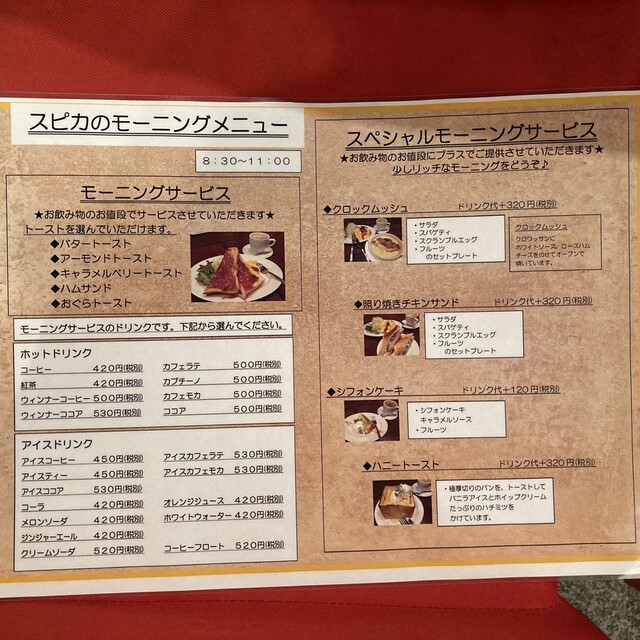 スピカのモーニングメニュー
8:30~11:00
モーニングサービス
★お飲み物のお値段でサービスさせていただきます★
トーストを選んでいただけます。
◆バタートースト
◆アーモンドトースト
◆キャラメルベリートースト
◆ハムサンド
◆おぐらトースト
モーニングサービスのドリンクです。下記から選んでください。
ホットドリンク
コーヒー 420円(税別)
紅茶 420円(税別)
ウィンナーコーヒー 500円(税別)
ウィンナーココア 530円(税別)
カフェラテ 500円(税別)
カプチーノ 500円(税別)
カフェモカ 500円(税別)
ココア 500円(税別)
アイスドリンク
アイスコーヒー 450円(税別)
アイスティー 450円(税別)
アイスココア 530円(税別)
コーラ 420円(税別)
メロンソーダ 420円(税別)
ジンジャーエール 420円(税別)
クリームソーダ 520円(税別)
アイスカフェラテ 530円(税別)
アイスカフェモカ 530円(税別)
オレンジジュース 420円(税別)
ホワイトウォーター 420円(税別)
コーヒーフロート 520円(税別)
スペシャルモーニングサービス
★お飲み物のお値段にプラスでご提供させていただきます★
少しリッチなモーニングをどうぞ♪
◆クロックムッシュ ドリンク代+320円(税別)
・サラダ
・スパゲティ
・スクランブルエッグ
・フルーツ
のセットプレート
クロックムッシュ
クロワッサンに
ホワイトソース、ロースハム
チーズをのせてオーブンで
焼いています。
◆照り焼きチキンサンド ドリンク代+320円(税別)
・サラダ
・スパゲティ
・スクランブルエッグ
・フルーツ
のセットプレート
◆シフォンケーキ ドリンク代+120円(税別)
・シフォンケーキ
キャラメルソース
・フルーツ
◆ハニートースト ドリンク代+320円(税別)
・極厚切りのパンを、トーストして
バニラアイスとホイップクリーム
たっぷりのハチミツを
かけています。